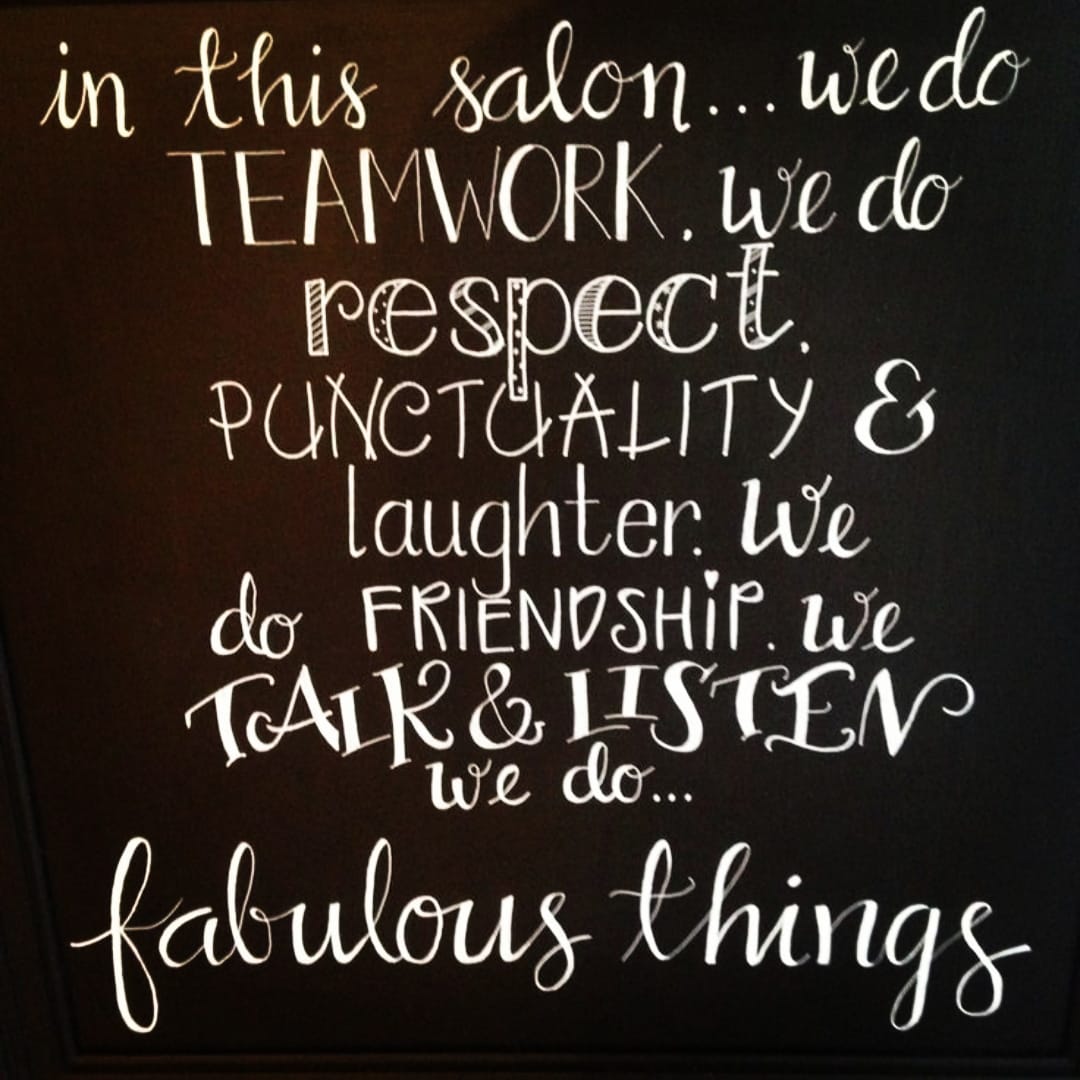 in this salon... we do
TEAMWORK. we do
respect.
PUNCTUALITY &
laughter. We
do FRIENDSHiP. we
TALK & LISTEN
we do...
fabulous things